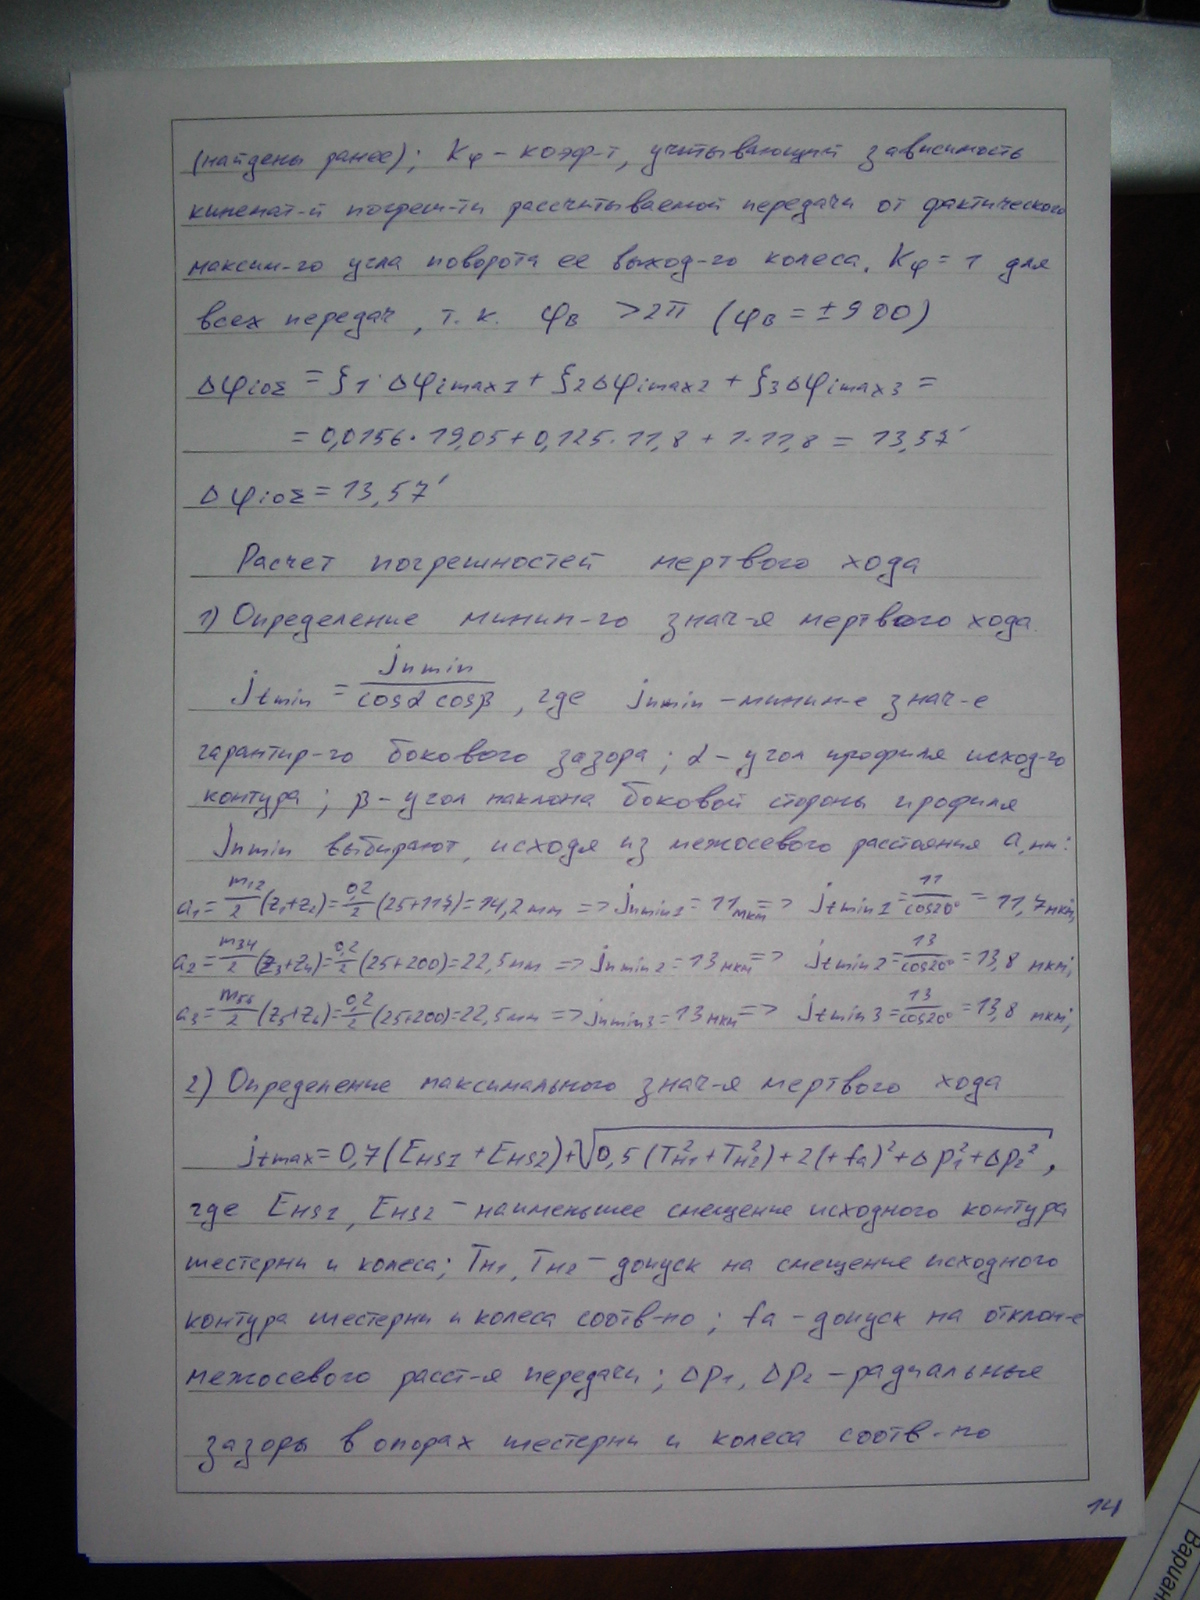 (найдены ранее); Kφ – коэф-т, учитывающий зависимость
кинемат-й погреш-ти рассчитываемой передачи от фактического
максим-го угла поворота ее выход-го колеса. Kφ = 1 для
всех передач, т. к. φв > 2π (φв = ±900)
Δφi0Σ = ξ1·Δφimax1 + ξ2Δφimax2 + ξ3Δφimax3 =
= 0,0156·19,05 + 0,125·11,8 + 1·11,8 = 13,57′
Δφi0Σ = 13,57′
Расчет погрешностей мертвого хода
1) Определение миним-го знач-я мертвого хода.
jtmin = jnmin / cosα cosβ, где jnmin – миним-е знач-е
гарантир-го бокового зазора; α – угол профиля исход-го
контура; β – угол наклона боковой стороны профиля
Jnmin выбирают, исходя из межосевого расстояния a, мм:
a1 = m12/2 (z1+z2) = 0,2/2 (25+117) = 14,2 мм => jnmin1 = 11 мкм => jtmin1 = 11/cos20° = 11,7 мкм;
a2 = m34/2 (z3+z4) = 0,2/2 (25+200) = 22,5 мм => jnmin2 = 13 мкм => jtmin2 = 13/cos20° = 13,8 мкм;
a3 = m56/2 (z5+z6) = 0,2/2 (25+200) = 22,5 мм => jnmin3 = 13 мкм => jtmin3 = 13/cos20° = 13,8 мкм;
2) Определение максимального знач-я мертвого хода
jtmax = 0,7 (EHS1 + EHS2) + √0,5 (TH1² + TH2²) + 2(+fa)² + Δp1² + Δp2²,
где EHS1, EHS2 – наименьшее смещение исходного контура
шестерни и колеса; TH1, TH2 – допуск на смещение исходного
контура шестерни и колеса соотв-но; fa – допуск на отклон-е
межосевого расст-я передачи; Δp1, Δp2 – радиальные
зазоры в опорах шестерни и колеса соотв-но
14
Вариан